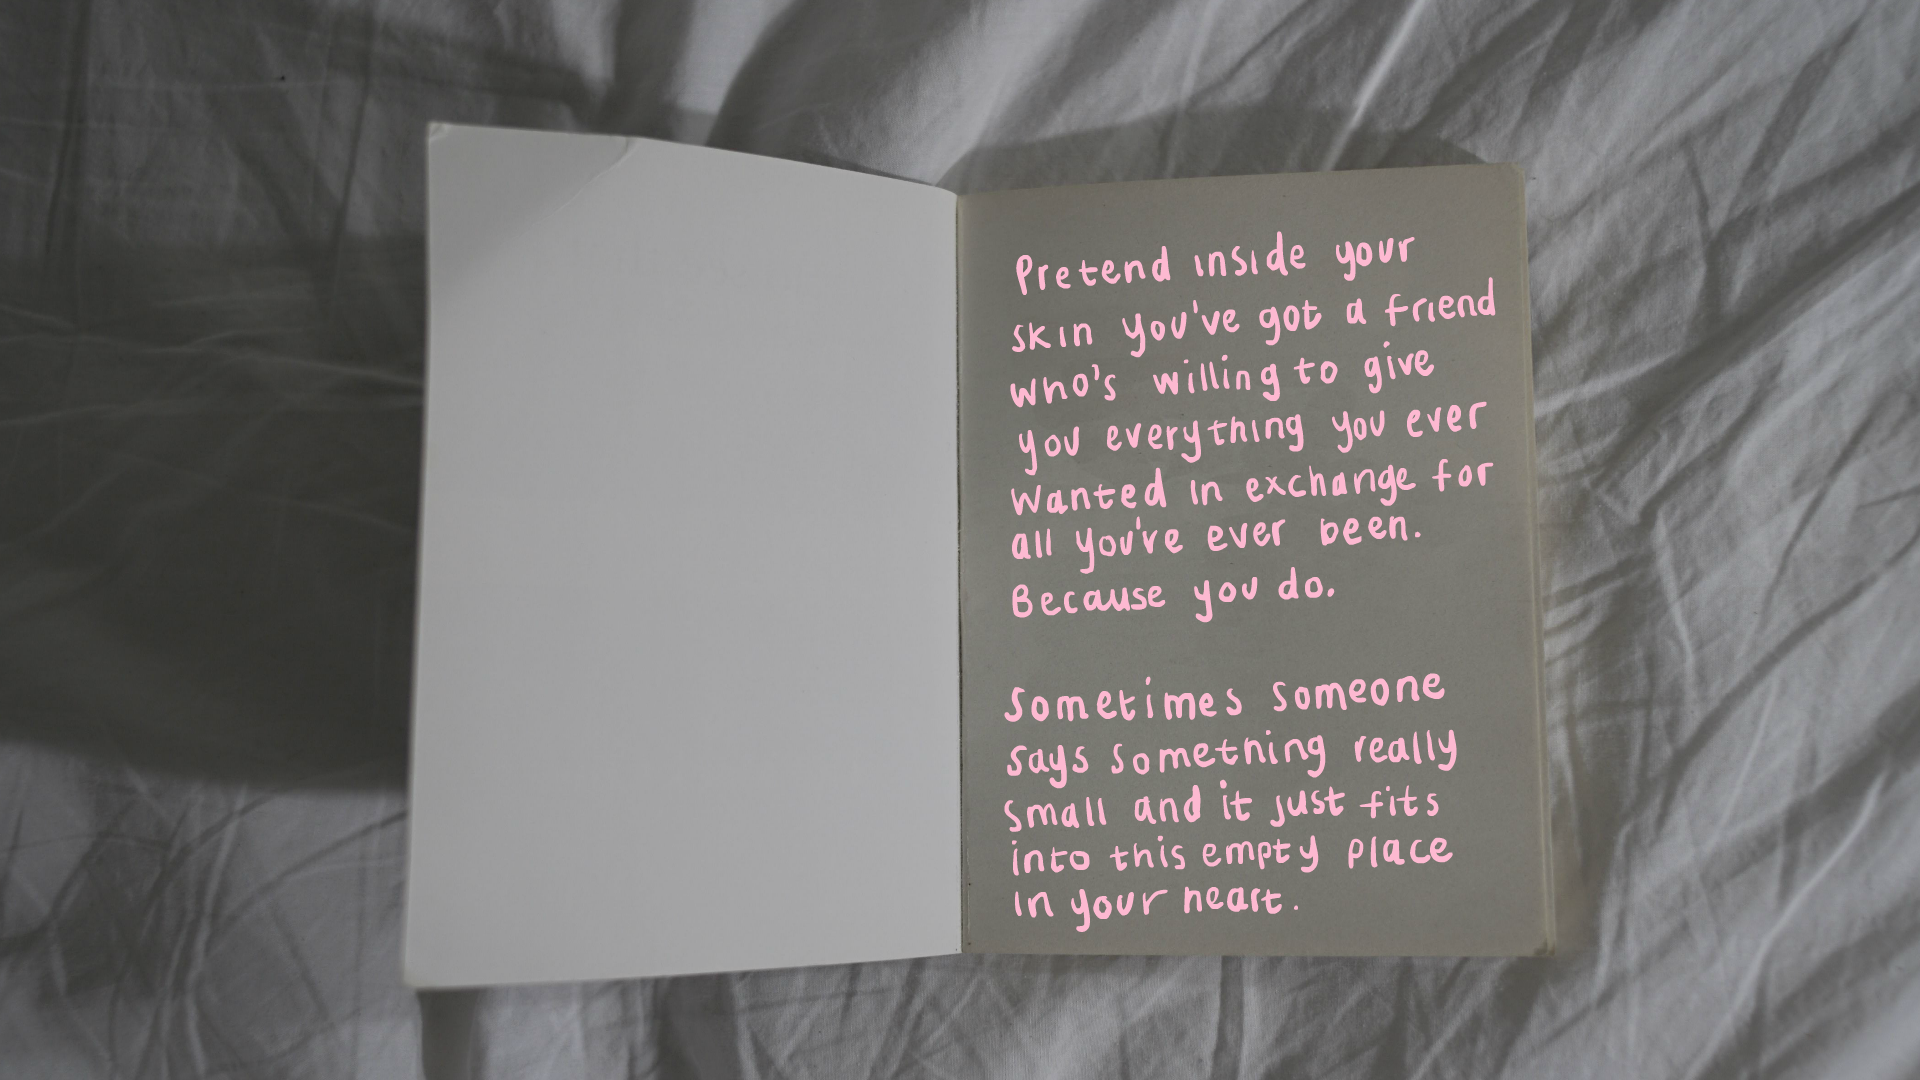 Pretend inside your
skin you've got a friend
who's willing to give
you everything you ever
wanted in exchange for
all you've ever been.
Because you do.
Sometimes someone
says something really
small and it just fits
into this empty place
in your heart.